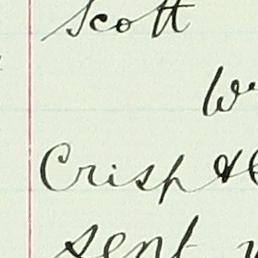 Scott
Crisp &
sent